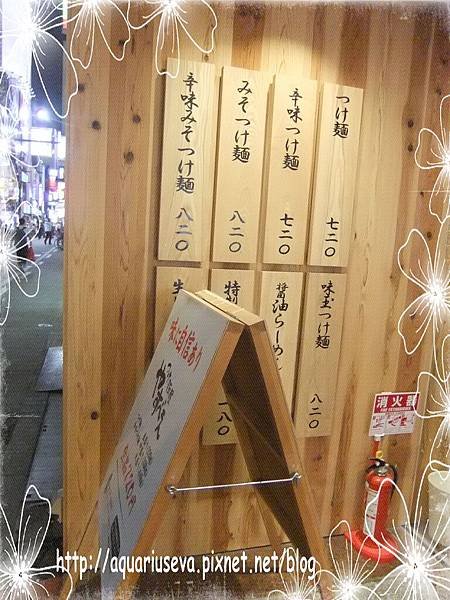 つけ麺 七二〇
辛味つけ麺 七二〇
みそつけ麺 八二〇
辛味みそつけ麺 八二〇
味玉つけ麺 八二〇
醤油らーめん
特
生
味に自信あり
消火器
http://aquariuseva.pixnet.net/blog